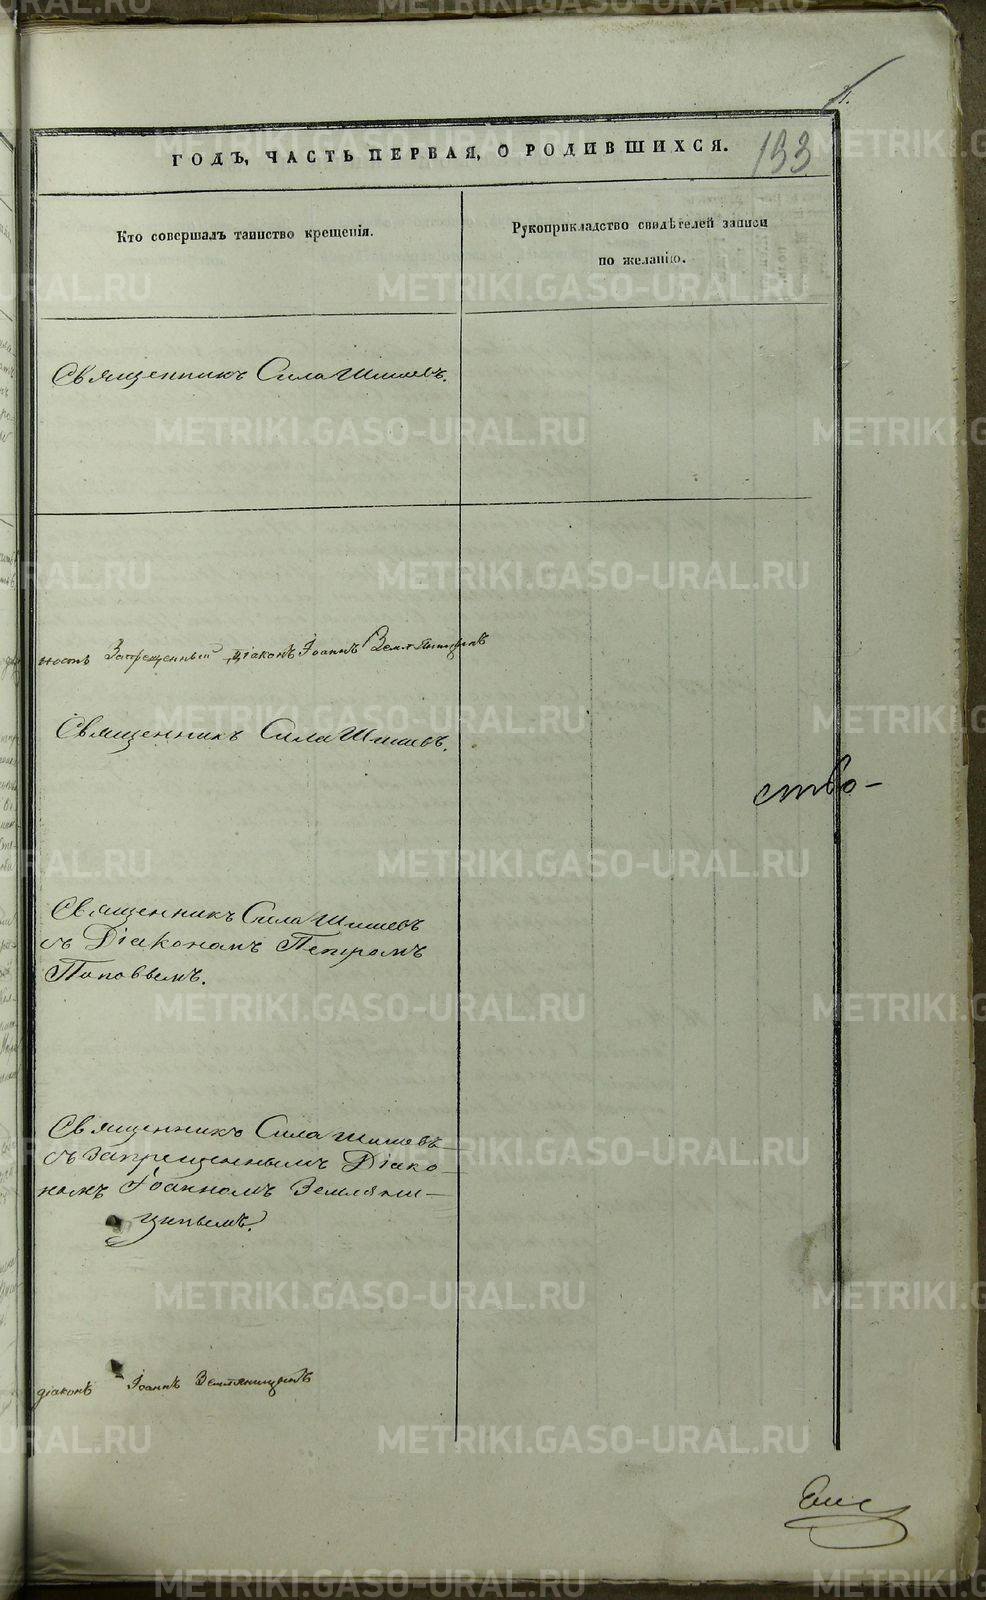 193
ГОДЪ, ЧАСТЬ ПЕРВАЯ, О РОДИВШИХСЯ.
Кто совершалъ таинство крещенія.
Рукоприкладство свидѣтелей записи
по желанію.
Священникъ Сила Шишевъ.
ность Запрещенный діаконъ Іоаннъ Земляницынъ
Священникъ Сила Шишевъ.
ство-
Священникъ Сила Шишевъ
съ Діакономъ Петромъ
Поповымъ.
Священникъ Сила Шишевъ
съ запрещеннымъ Діако
номъ Іоанномъ Земляни-
цынымъ.
діаконъ Іоаннъ Земляницынъ
METRIKI.GASO-URAL.RU